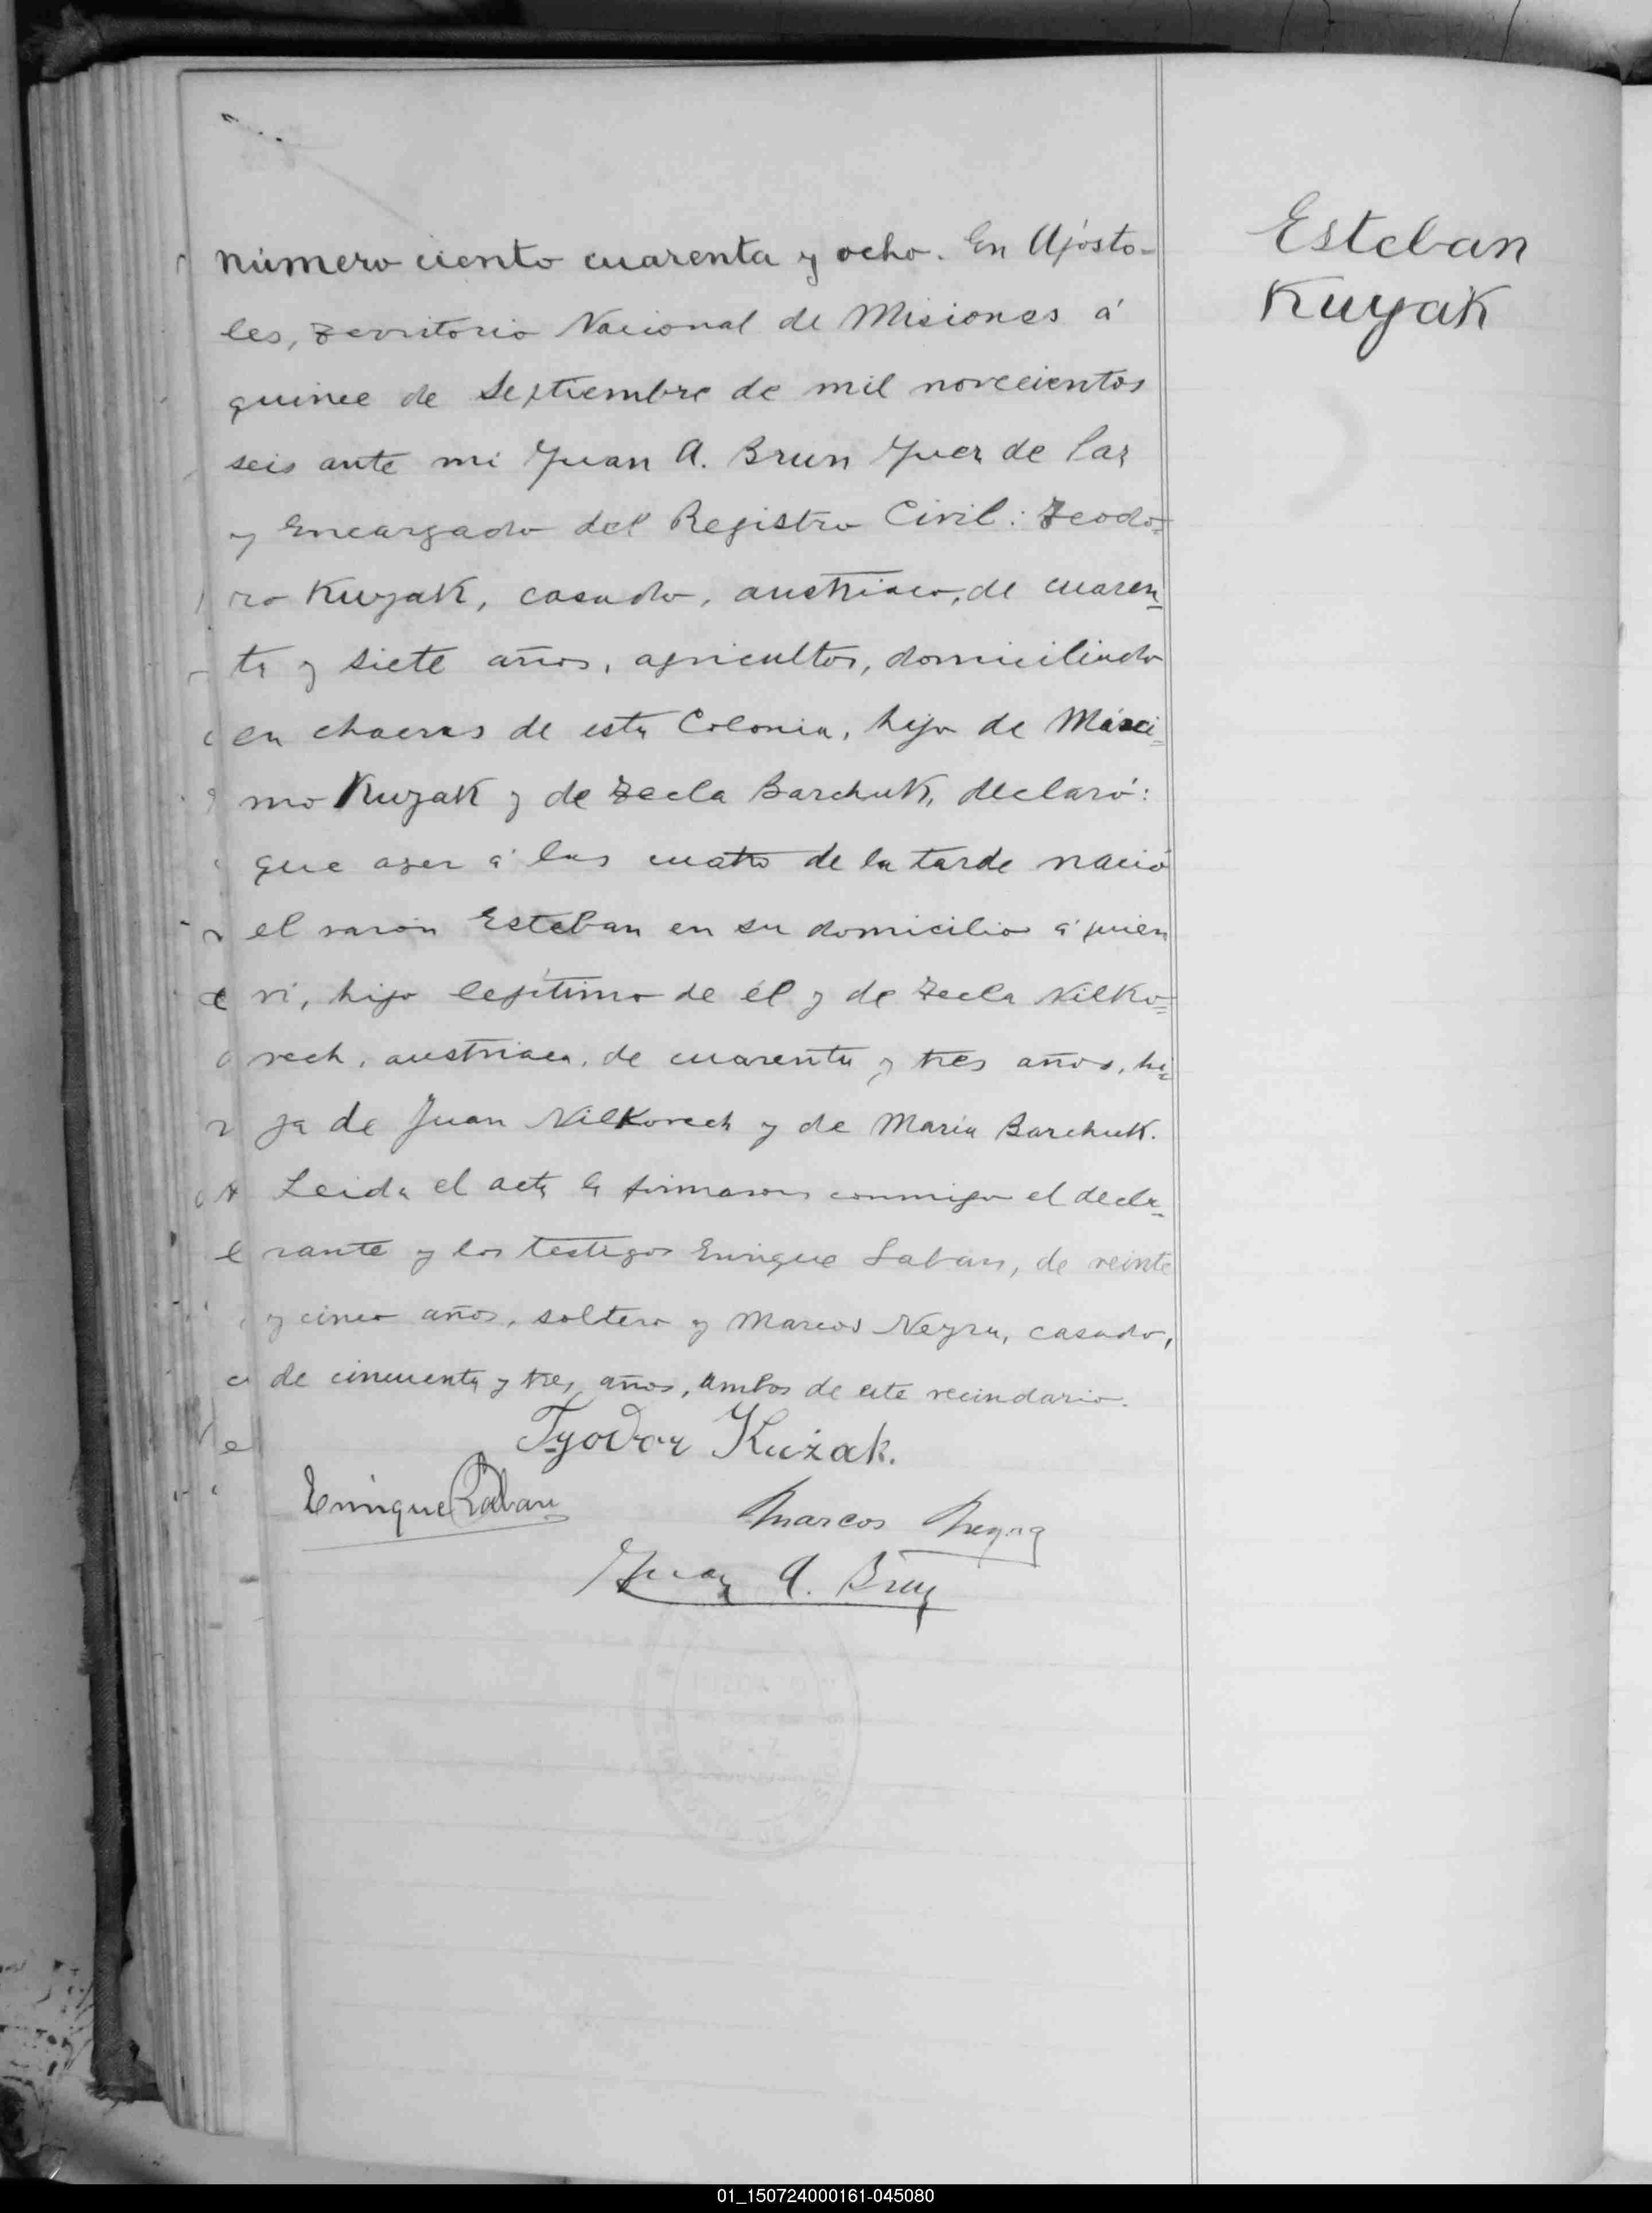 Esteban
Kuyak
número ciento cuarenta y ocho. En Apósto-
les, Territorio Nacional de Misiones á
quince de Septiembre de mil novecientos
seis ante mi Juan A. Brun Juez de Paz
y Encargado del Registro Civil: Teodo=
ro Kuyak, casado, austriaco, de cuaren=
ta y siete años, agricultor, domiciliado
en chacras de esta Colonia, hijo de Máxi=
mo Kuyak y de Tecla Barchuk, declaró:
que ayer á las cuatro de la tarde nació
el varón Esteban en su domicilio á quien
ví, hijo legítimo de él y de Tecla Nilko=
vech, austriaca, de cuarenta y tres años, hi=
ja de Juan Nilkovech y de María Barchuk.
Leida el acta la firmaron conmigo el decla=
rante y los testigos Enrique Laban, de veinte
y cinco años, soltero y Marcos Neyra, casado,
de cincuenta y tres años, ambos de este vecindario.
Tyodor Kużak.
Enrique Laban
Marcos Neyra
Juan A. Brun
01_150724000161-045080